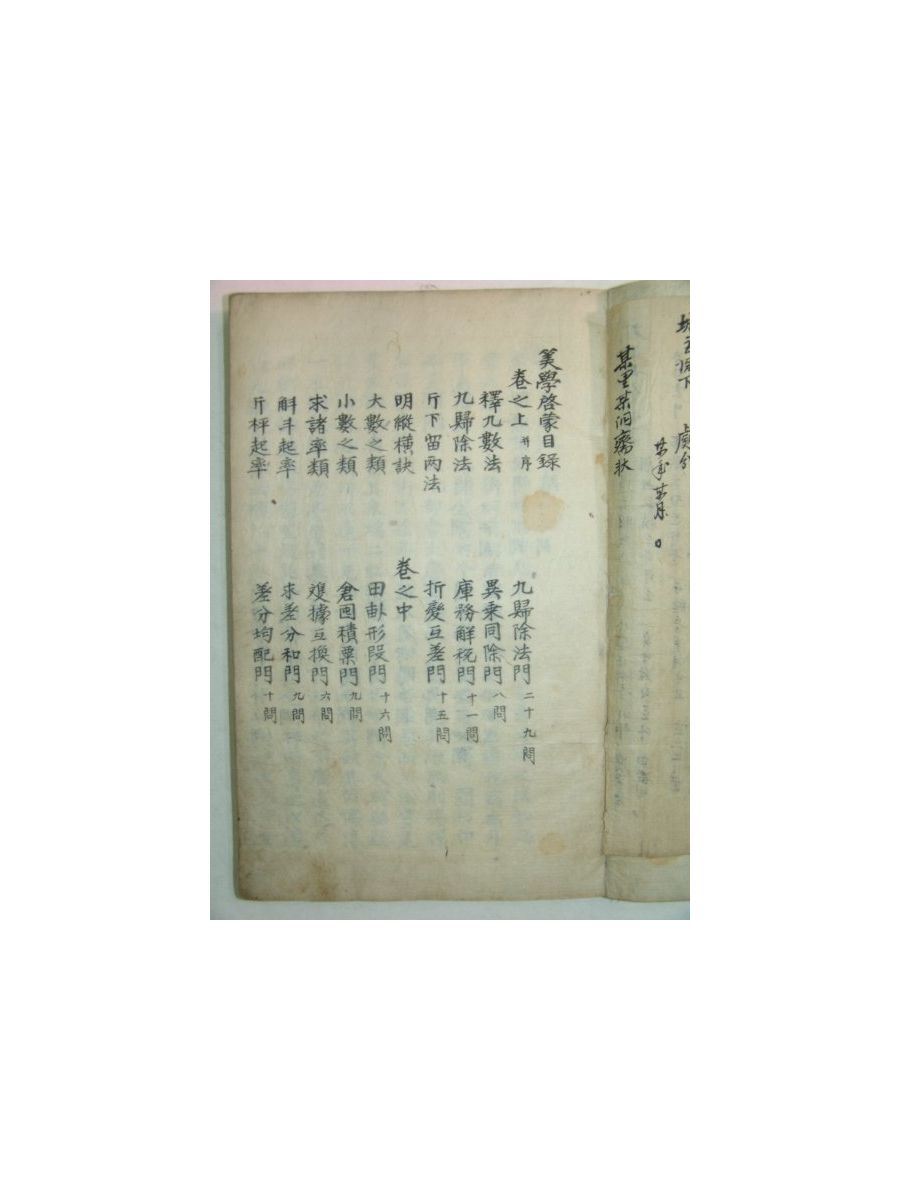 某里某洞癘狀
某年某月
筭學啓蒙目錄
卷之上 并序
釋九數法
九歸除法
斤下留兩法
明縱橫訣
大數之類
小數之類
求諸率類
斛斗起率
斤秤起率
九歸除法門 二十九問
異乘同除門 八問
庫務解稅門 十一問
折變互差門 十五問
卷之中
田畝形段門 十六問
倉囤積粟門 九問
䨇據互換門 六問
求差分和門 九問
差分均配門 十問